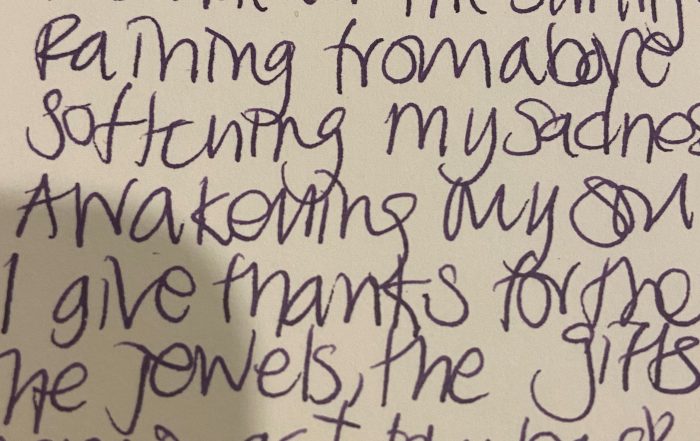 Raining from above
Softening my sadnes
Awakening my soul
I give thanks for the
he jewels, the gifts